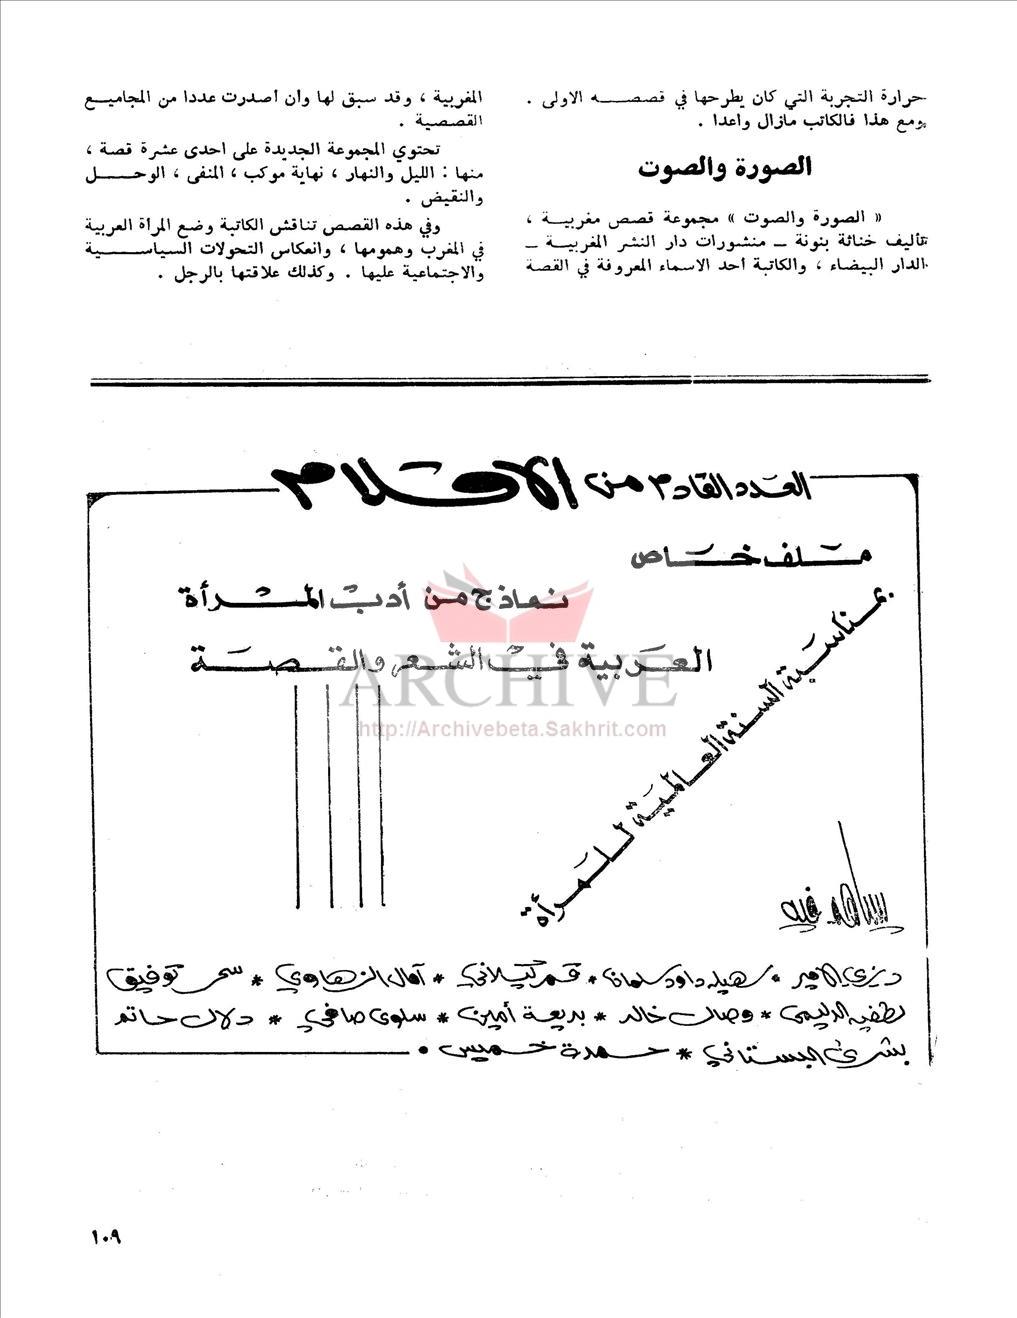 حرارة التجربة التي كان يطرحها في قصصه الاولى .
ومع هذا فالكاتب مازال واعدا .
الصورة والصوت
« الصورة والصوت » مجموعة قصص مغربية ،
تأليف خناثة بنونة ــ منشورات دار النشر المغربية ــ
الدار البيضاء ، والكاتبة احد الاسماء المعروفة في القصة
المغربية ، وقد سبق لها وأن أصدرت عددا من المجاميع
القصصية .
تحتوي المجموعة الجديدة على احدى عشرة قصة ،
منها : الليل والنهار ، نهاية موكب ، المنفى ، الوحل
والنقيض .
وفي هذه القصص تناقش الكاتبة وضع المرأة العربية
في المغرب وهمومها ، وانعكاس التحولات السياسية
والاجتماعية عليها . وكذلك علاقتها بالرجل .
العدد القادم من الاقلام
ملف خاص
نماذج من أدب المرأة
العربية في الشعر والقصة
بمناسبة السنة العالمية للمرأة
ARCHIVE
http://Archivebeta.Sakhrit.com
يساهم فيه
ديزي الامير * سهيله داود سلمان * قمر كيلاني * آمال الزهاوي * سحر توفيق
لطفيه الدليمي * وصال خالد * بديعة أمين * سلوى صافي * دلال حاتم
بشرى البستاني * حمدة خميس .
١٠٩